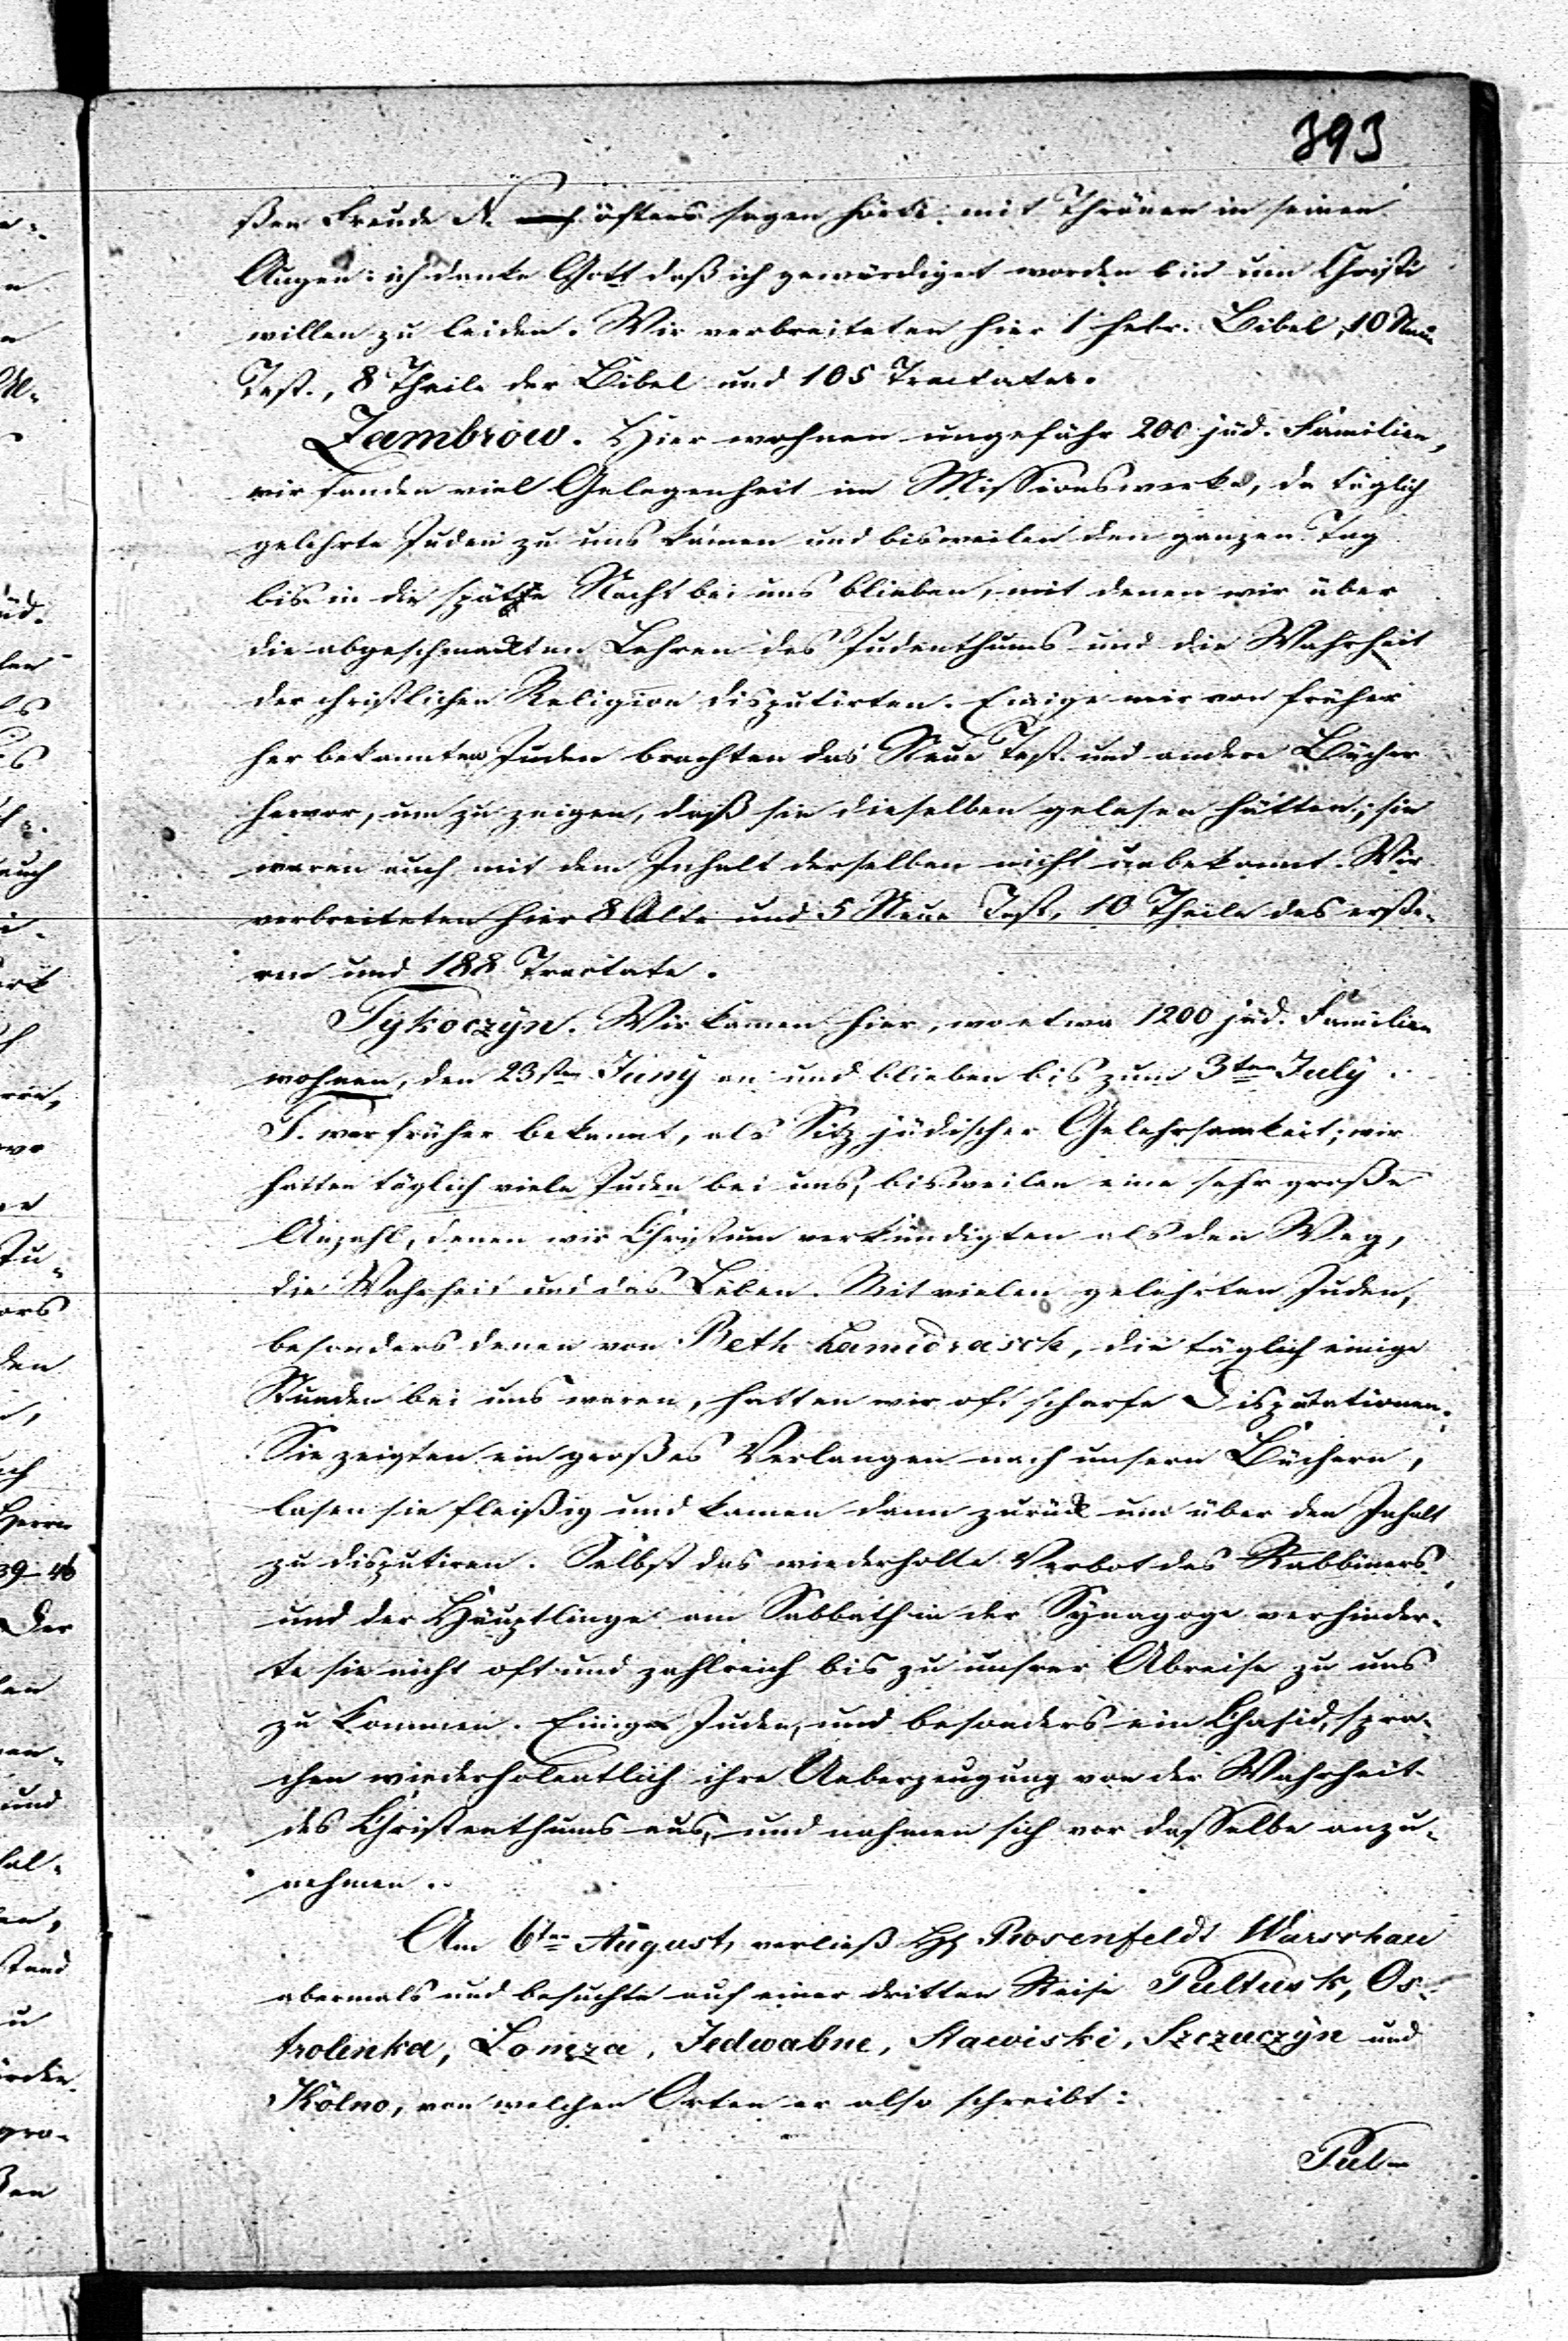 393
ßen Freude N. öfters sagen hörte mit Thränen in seinen
Augen: ich danke Gott daß ich gewürdiget worden bin um Christi
willen zu leiden. Wir verbreiteten hier 1 hebr. Bibel, 10 Neue
Test., 8 Theile der Bibel und 105 Tractate.
Zambrow. Hier wohnen ungefähr 200 jüd. Familien,
wir fanden viel Gelegenheit im Missionswerke, da täglich
gelehrte Juden zu uns kamen und bisweilen den ganzen Tag
bis in die späte Nacht bei uns blieben, mit denen wir über
die abgeschmackten Lehren des Judenthums und die Wahrheit
der christlichen Religion disputirten. Einige mir von früher
her bekannten Juden brachten das Neue Test. und andere Bücher
hervor, um zu zeigen, daß sie dieselben gelesen hätten; sie
waren auch mit dem Inhalt derselben nicht unbekannt. Wir
verbreiteten hier 8 Alte und 5 Neue Test., 10 Theile des erste-
ren und 188 Tractate.
Tykoczyn. Wir kamen hier, wo etwa 1200 jüd. Familien
wohnen, den 23sten Juny an und blieben bis zum 3ten July.
T. war früher bekannt, als Sitz jüdischer Gelehrsamkeit; wir
hatten täglich viele Juden bei uns, bisweilen eine sehr große
Anzahl, denen wir Christum verkündigten als den Weg,
die Wahrheit und das Leben. Mit vielen gelehrten Juden,
besonders denen von Beth hamidrasch, die täglich einige
Stunden bei uns waren, hatten wir oft scharfe Disputationen.
Sie zeigten ein großes Verlangen nach unsern Büchern,
lasen sie fleißig und kamen dann zurück um über den Inhalt
zu disputiren. Selbst das wiederholte Verbot des Rabbiners
und der Häuptlinge am Sabbath in der Synagoge verhinder-
te sie nicht oft und zahlreich bis zu unsrer Abreise zu uns
zu kommen. Einige Juden, und besonders ein Chasid, spra-
chen wiederholentlich ihre Ueberzeugung von der Wahrheit
des Christenthums aus, und nahmen sich vor dasselbe anzu-
nehmen.
Am 6ten August, verließ H. Rosenfeldt Warschau
abermals und besuchte auf einer dritten Reise Pultusk, Os-
trolenka, Lomza, Jedwabne, Stawiski, Szczuczyn und
Kolno, von welchen Orten er also schreibt:
Pul-